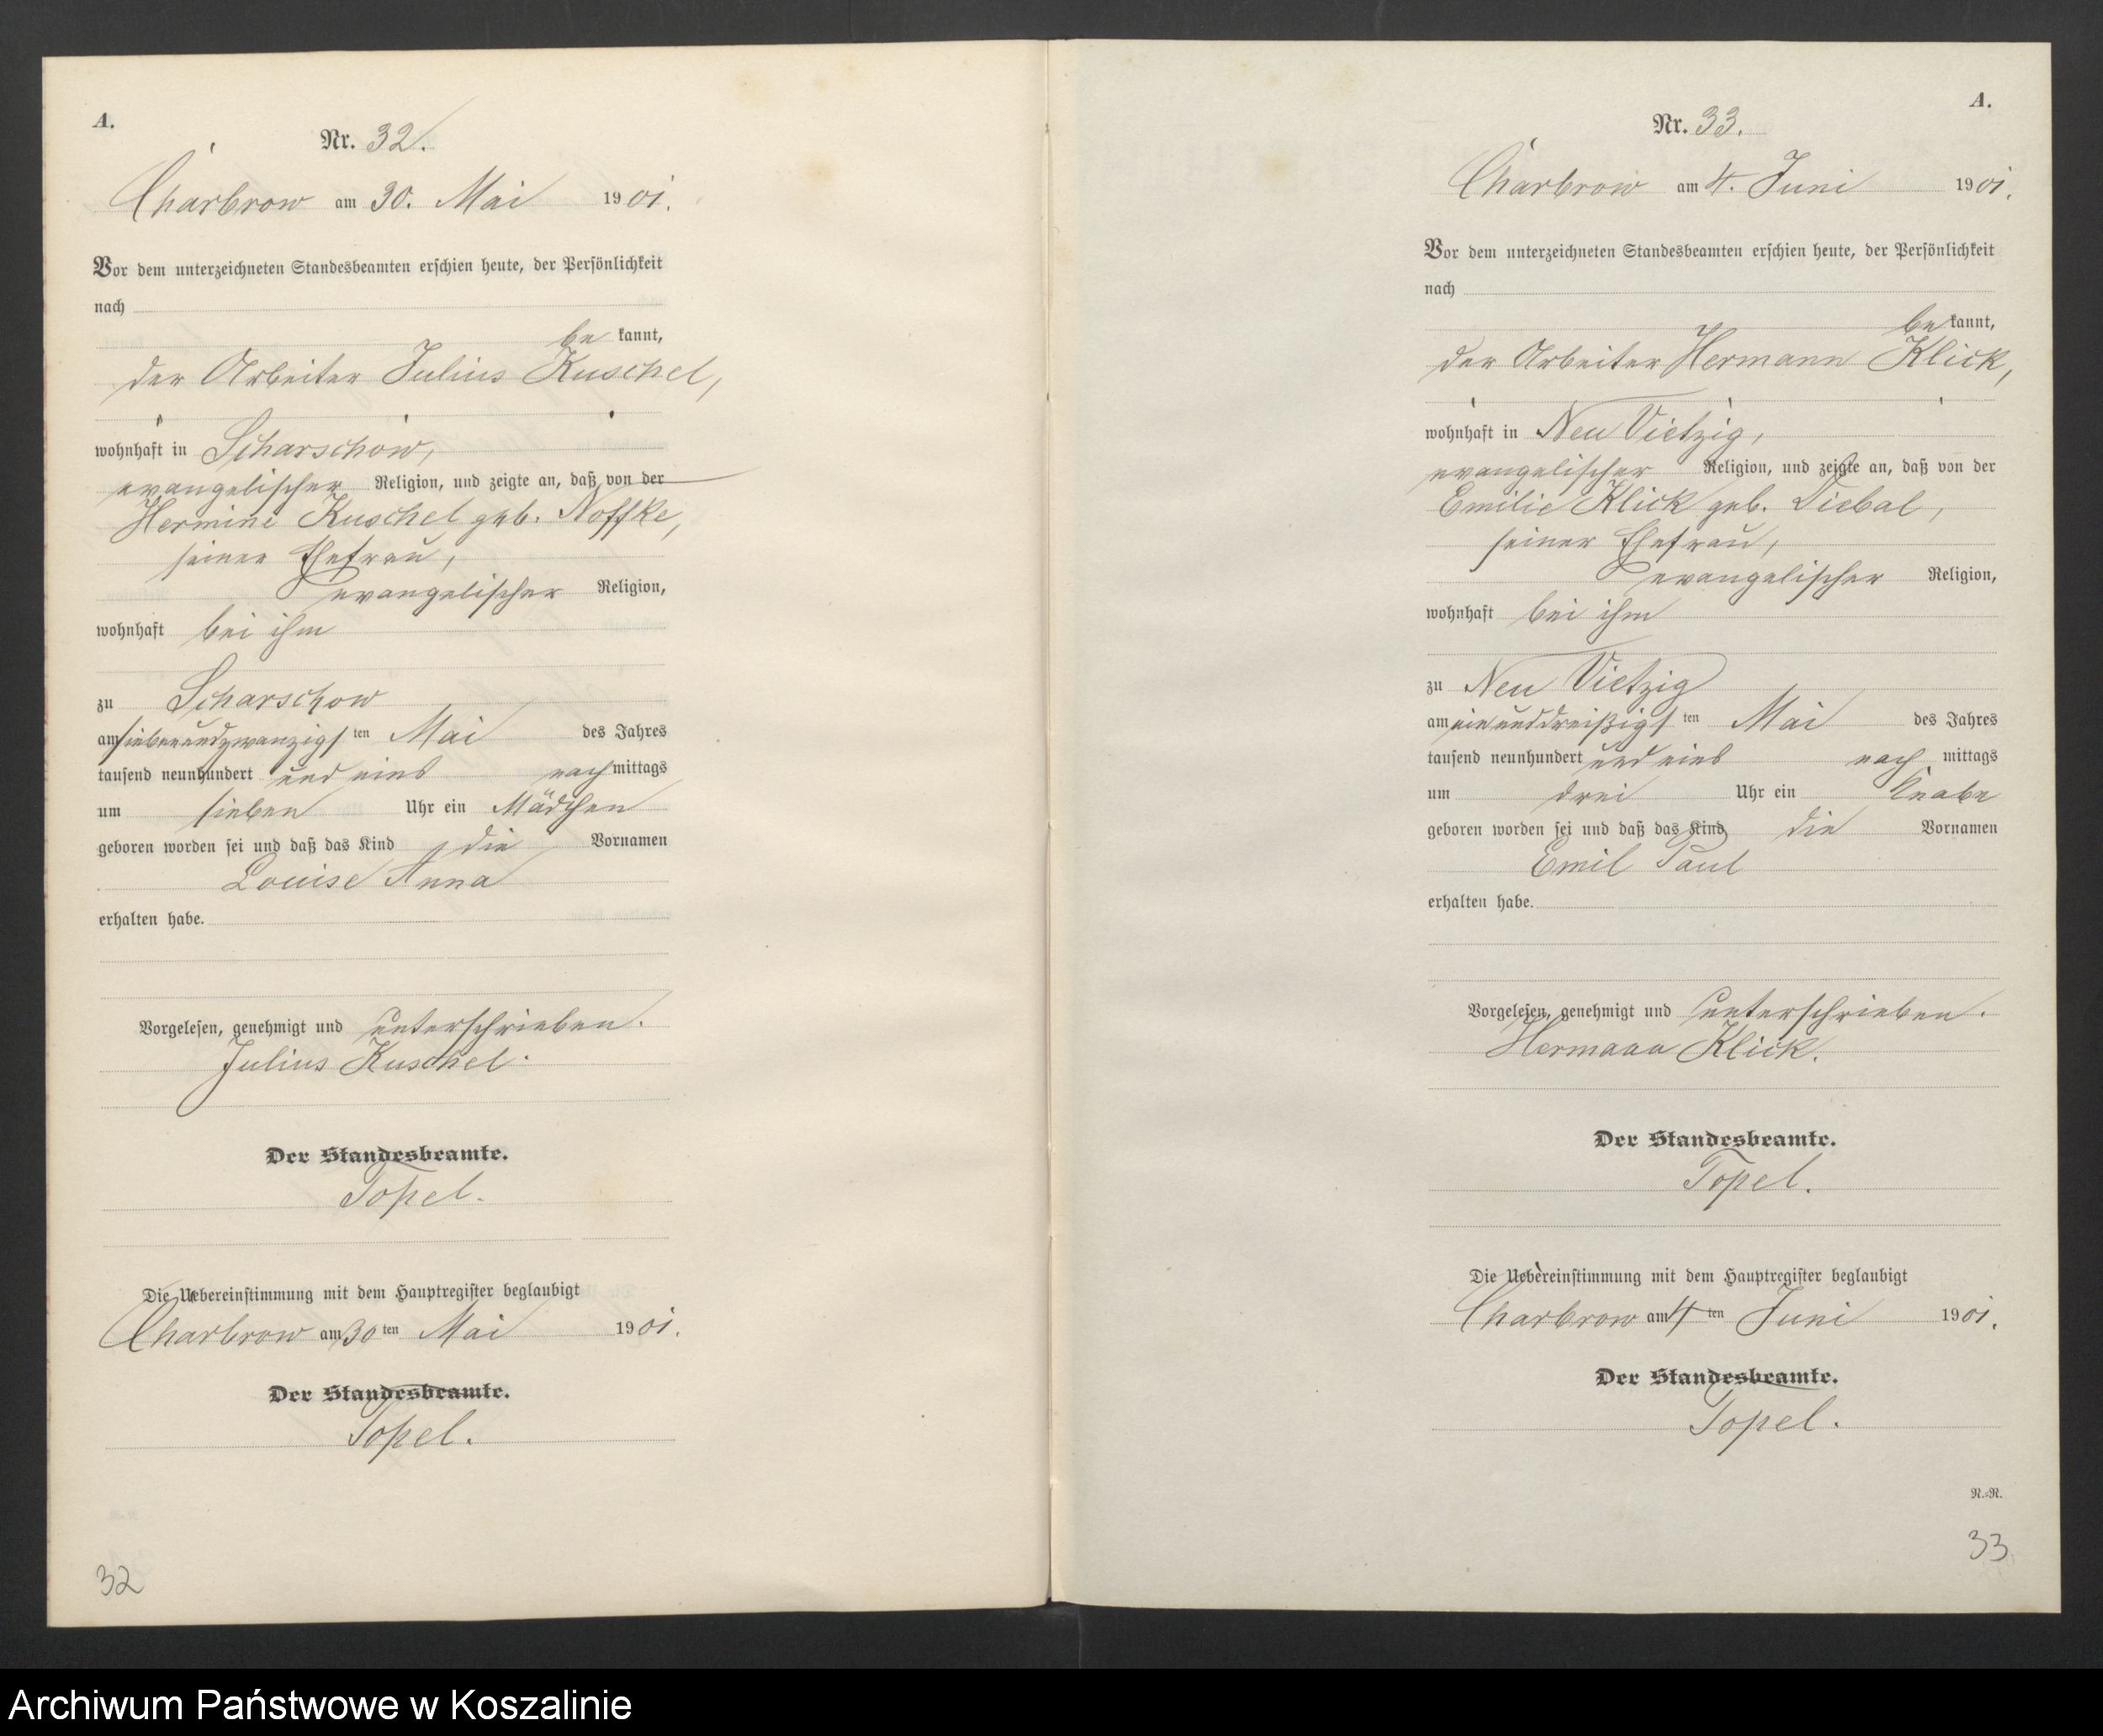 A.
Nr. 32.
Charbrow am 30. Mai 1901.
Vor dem unterzeichneten Standesbeamten erschien heute, der Persönlichkeit
nach
be kannt,
der Arbeiter Julius Kuschel,
wohnhaft in Scharschow,
evangelischer Religion, und zeigte an, daß von der
Hermine Kuschel geb. Noffke,
seiner Ehefrau,
evangelischer Religion,
wohnhaft bei ihm
zu Scharschow
am siebenundzwanzigsten Mai des Jahres
tausend neunhundert und eins nachmittags
um sieben Uhr ein Mädchen
geboren worden sei und daß das Kind die Vornamen
Louise Anna
erhalten habe.
Vorgelesen, genehmigt und unterschrieben.
Julius Kuschel.
Der Standesbeamte.
Topel.
Die Uebereinstimmung mit dem Hauptregister beglaubigt
Charbrow am 30 ten Mai 1901.
Der Standesbeamte.
Topel.
32
A.
Nr. 33.
Charbrow am 4. Juni 1901.
Vor dem unterzeichneten Standesbeamten erschien heute, der Persönlichkeit
nach
be kannt,
der Arbeiter Hermann Klick,
wohnhaft in Neu Vietzig,
evangelischer Religion, und zeigte an, daß von der
Emilie Klick geb. Diebal,
seiner Ehefrau,
evangelischer Religion,
wohnhaft bei ihm
zu Neu Vietzig
am einunddreißigsten Mai des Jahres
tausend neunhundert und eins nach mittags
um drei Uhr ein Knabe
geboren worden sei und daß das Kind die Vornamen
Emil Paul
erhalten habe.
Vorgelesen, genehmigt und unterschrieben.
Hermann Klick.
Der Standesbeamte.
Topel.
Die Uebereinstimmung mit dem Hauptregister beglaubigt
Charbrow am 4 ten Juni 1901.
Der Standesbeamte.
Topel.
R.=R.
33
Archiwum Państwowe w Koszalinie